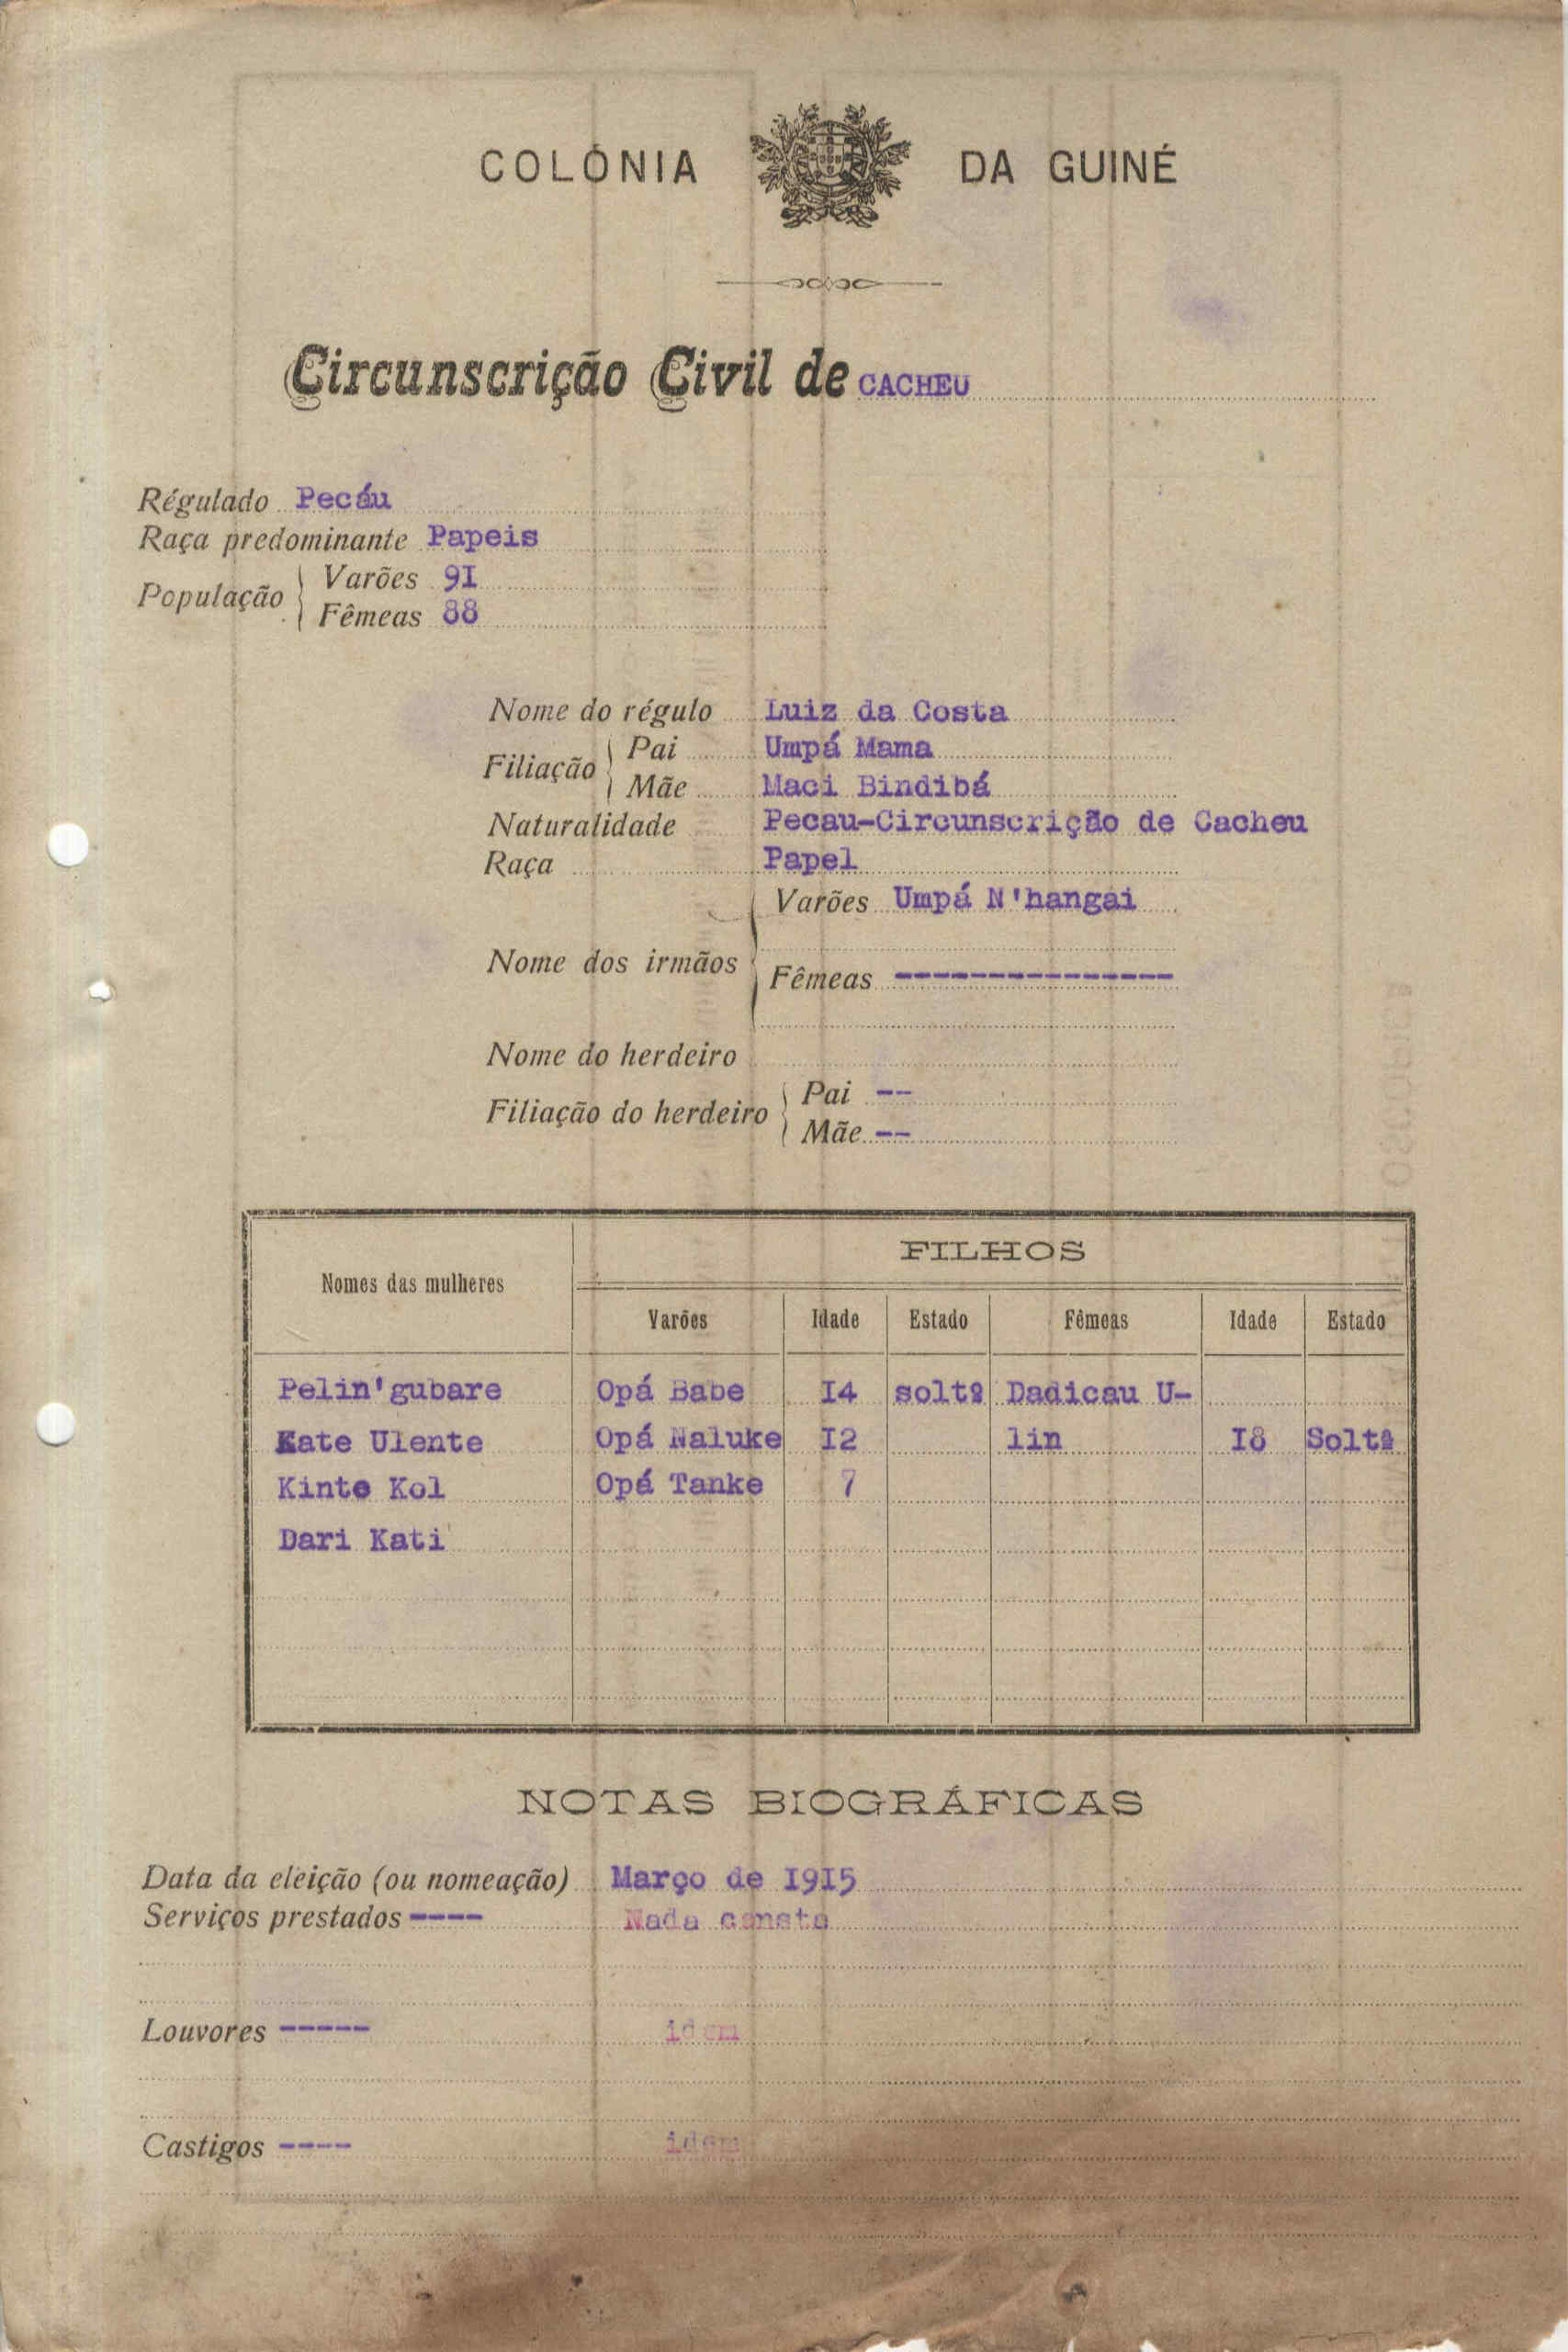 COLÓNIA DA GUINÉ
Circunscrição Civil de CACHEU
Régulado Pecáu
Raça predominante Papeis
População Varões 9I
Fêmeas 88
Nome do régulo Luiz da Costa
Filiação Pai Umpá Mama
Mãe Maci Bindibá
Naturalidade Pecau-Circunscrição de Cacheu
Raça Papel
Varões Umpá N'hangai
Nome dos irmãos
Fêmeas ---------------
Nome do herdeiro
Filiação do herdeiro Pai --
Mãe --
FILHOS
Nomes das mulheres
Varões Idade Estado Fêmeas Idade Estado
Pelin'gubare Opá Babe I4 soltº Dadicau U-
Kate Ulente Opá Naluke I2 lin I8 Soltª
Kinte Kol Opá Tanke 7
Dari Kati
NOTAS BIOGRÁFICAS
Data da eleição (ou nomeação) Março de I9I5
Serviços prestados ---- Nada consta
Louvores ----- idem
Castigos ---- idem